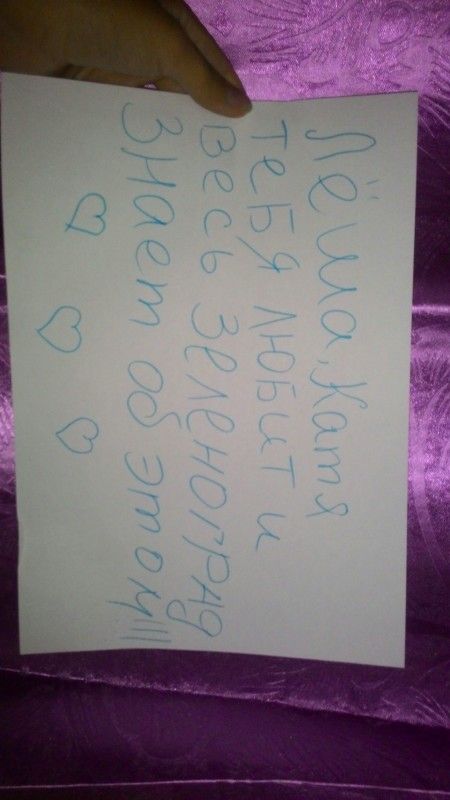 Лёша, Катя
тебя любит и
весь Зеленоград
знает об этом!!!